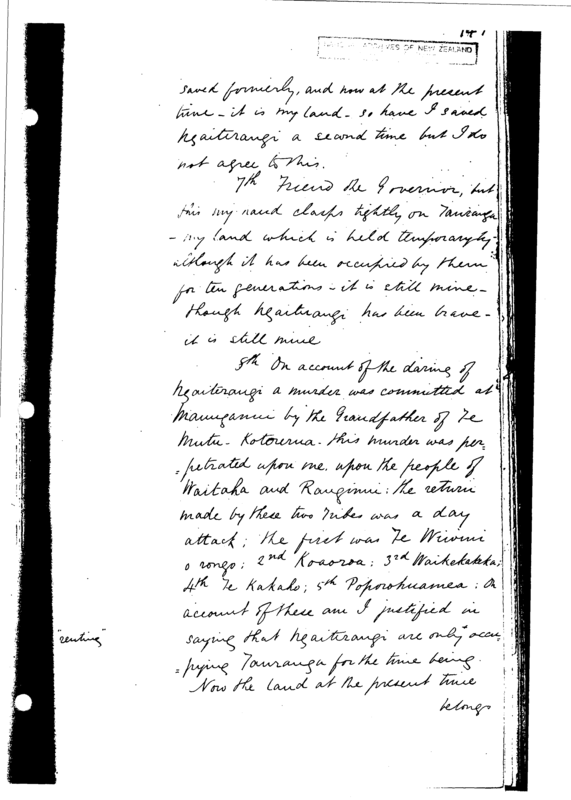 141
ARCHIVES OF NEW ZEALAND
saved formerly, and now at the present
time - it is my land - so have I saved
Ngaiterangi a second time but I do
not agree to this.
7th Friend the Governor, but
this my hand clasps tightly on Tauranga
- my land which is held temporaryly -
although it has been occupied by them
for ten generations - it is still mine -
though Ngaiterangi has been brave -
it is still mine
8th On account of the daring of
Ngaiterangi a murder was committed at
Maunganui by the Grandfather of Te
Mutu - Kotorerua. This murder was per=
=petrated upon me. upon the people of
Waitaha and Ranginui: the return
made by these two Tribes was a day
attack; the first was Te Wiwini
o rongo; 2nd Koaoroa; 3rd Waikekakeka;
4th Te Kakaho; 5th Poporohuamea: On
account of these am I justified in
saying that Ngaiterangi are only occu
"renting"
=pying Tauranga for the time being.
Now the land at the present time
belongs